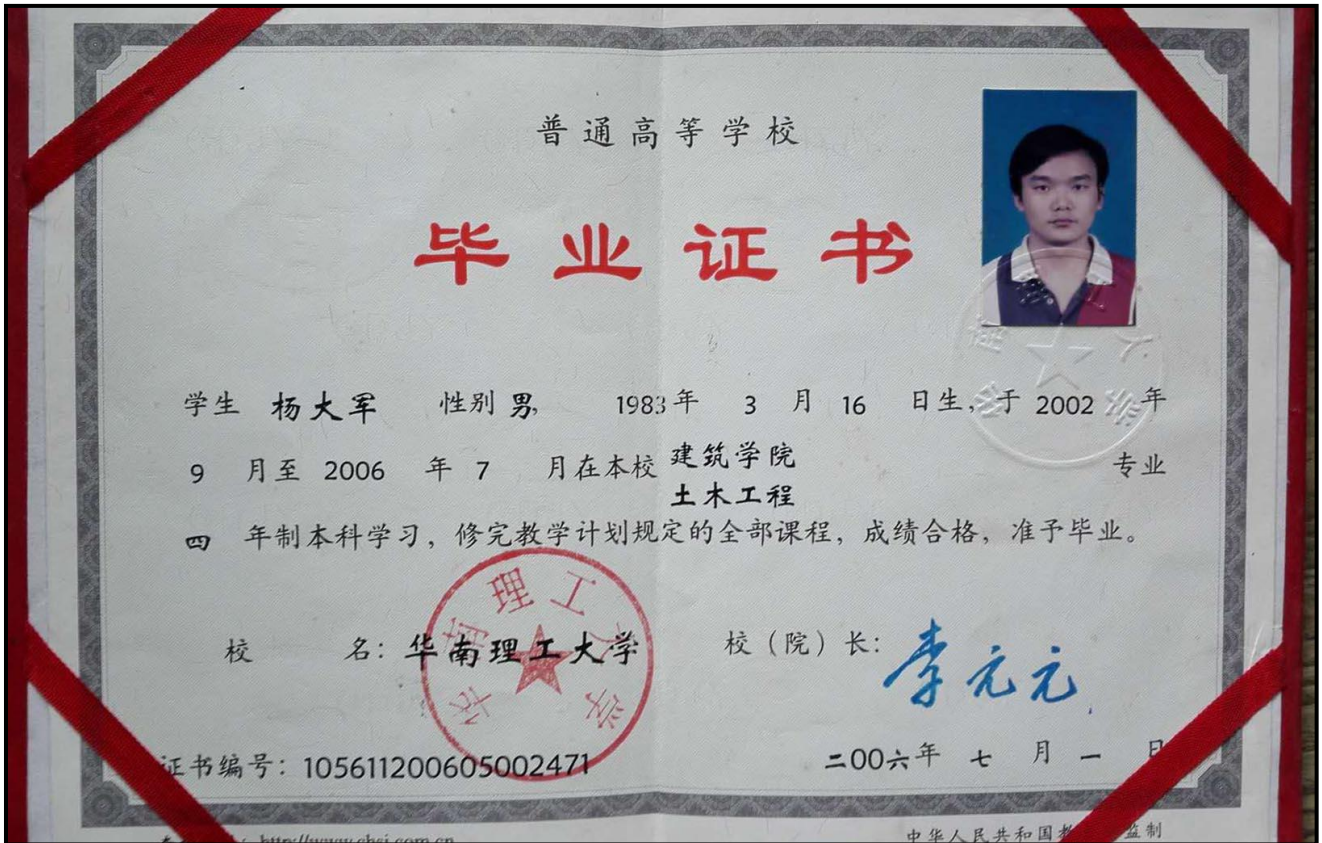 普通高等学校
毕业证书
学生 杨大军 性别 男, 1983 年 3 月 16 日生, 于 2002 年
9 月至 2006 年 7 月在本校 建筑学院 土木工程 专业
四 年制本科学习, 修完教学计划规定的全部课程, 成绩合格, 准予毕业。
校 名: 华南理工大学 校(院)长: 李元元
华南理工大学
证书编号: 105611200605002471 二00六年 七 月 一 日
http://www.chsi.com.cn 中华人民共和国教 监制